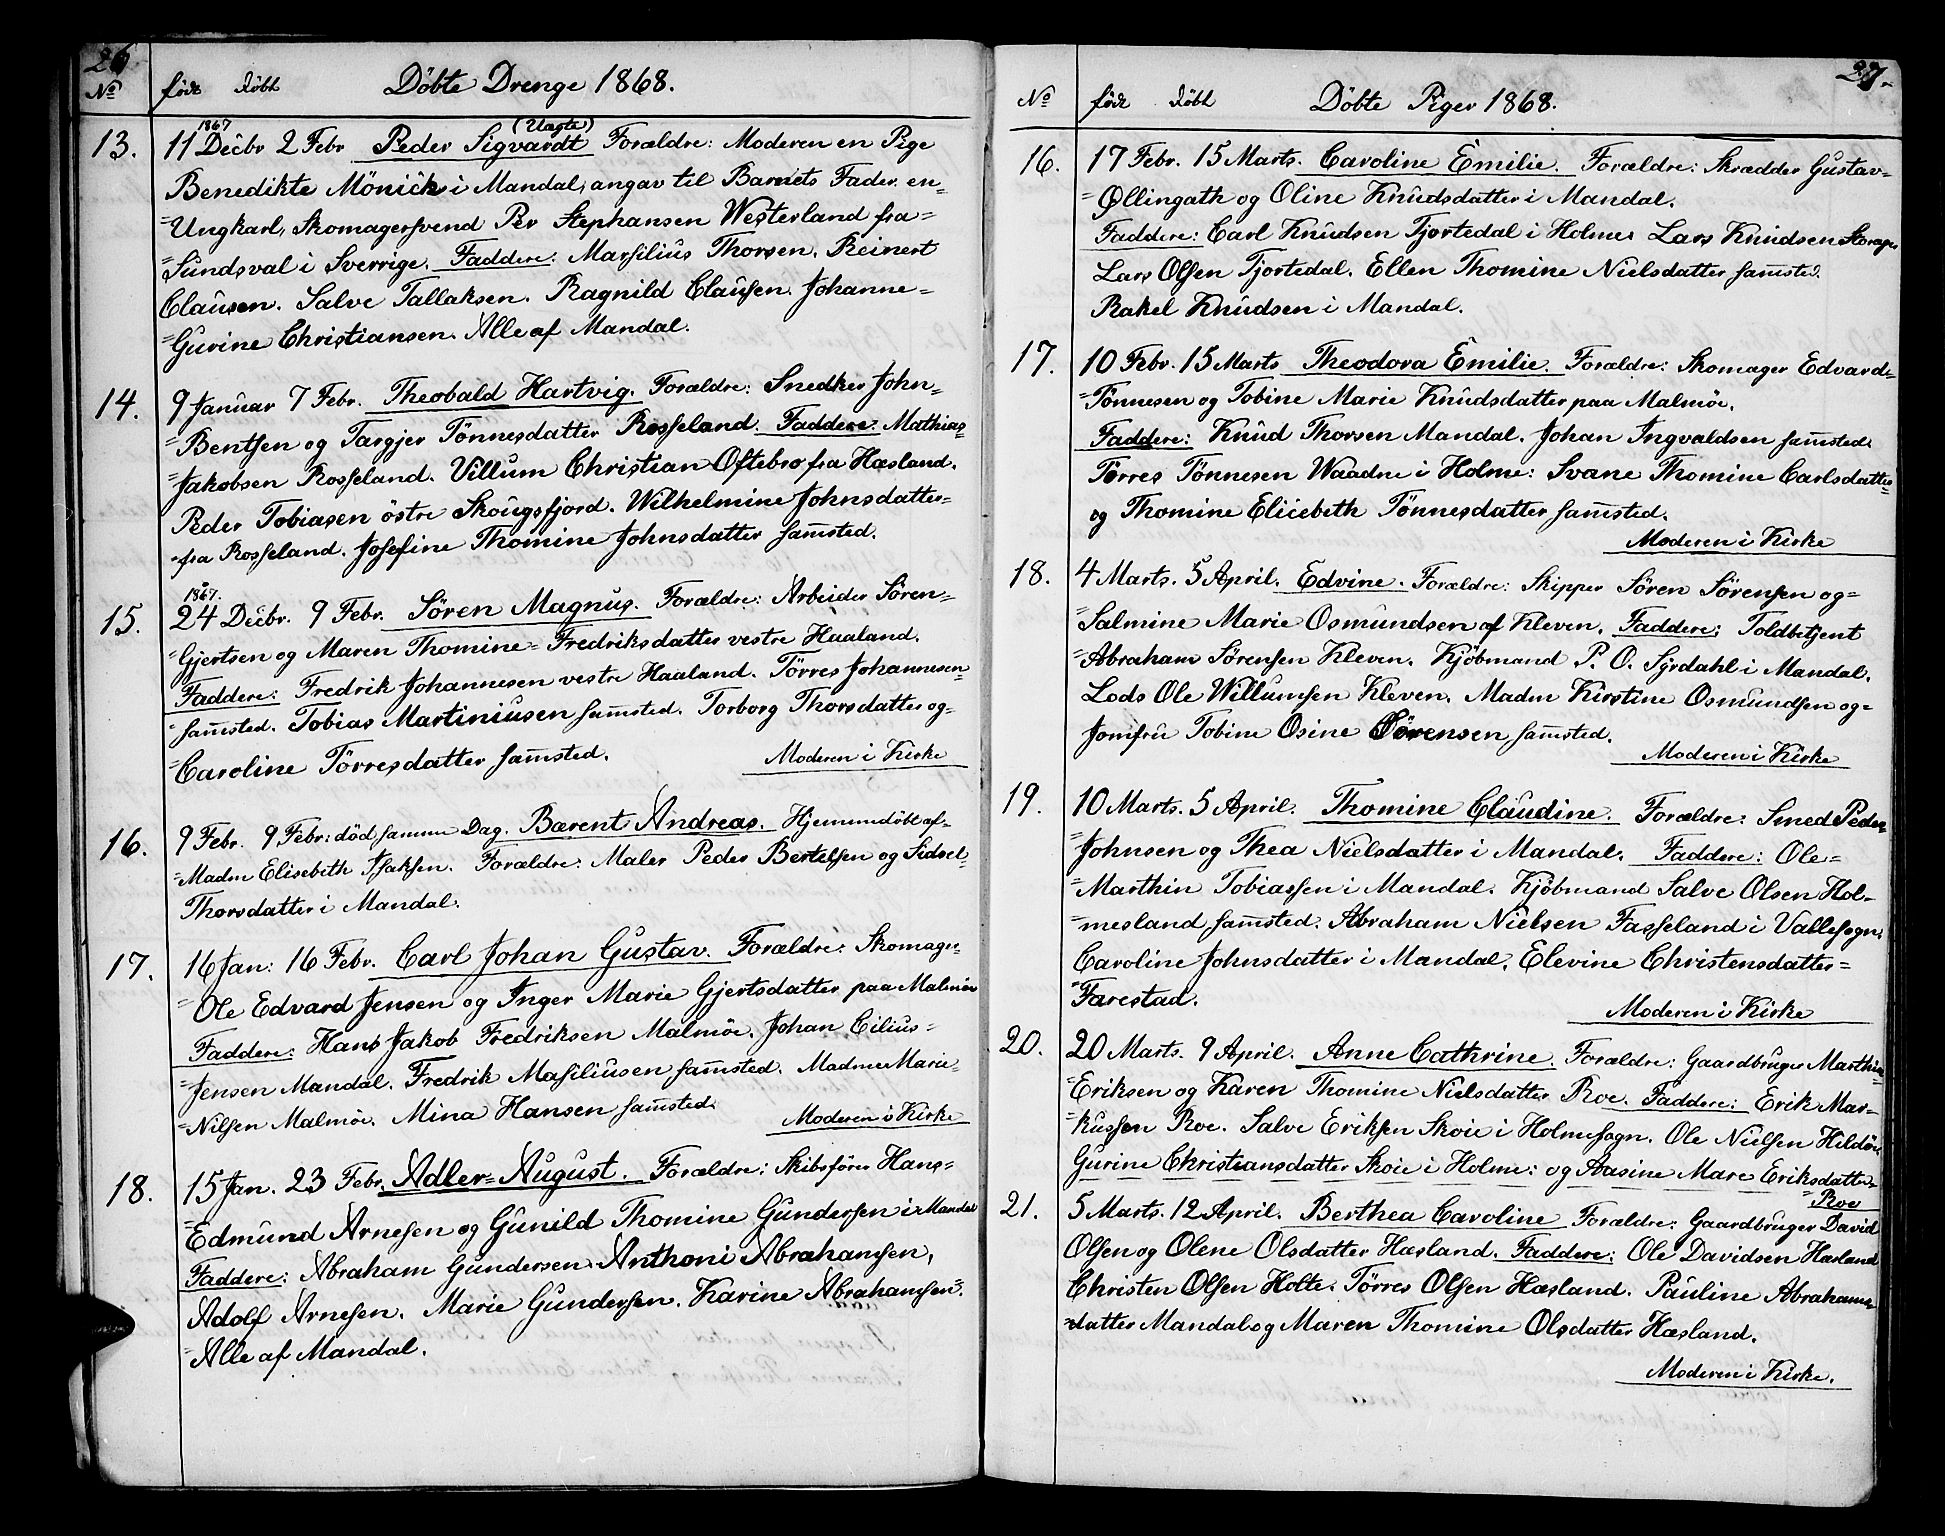 26
No født döbt Döbte Drenge 1868.
1867 (Uægte)
13. 11 Decbr 2 Febr Peder Sigvardt Forældre: Moderen en Pige
Benedikte Mönick i Mandal, angav til Barnets Fader en=
=Ungkarl, Skomagersvend Per Stephansen Westerland fra=
=Sundsval i Sverrige. Faddere: Marsilius Thorsen. Reinert
Clausen. Salve Tallaksen. Ragnild Clausen. Johanne=
=Gurine Christiansen. Alle af Mandal.
14. 9 Januar 7 Febr. Theobald Hartvig. Forældre: Snedker John=
=Bentsen og Targjer Tönnesdatter Rosseland. Faddere: Mathias=
=Jakobsen Rosseland. Villum Christian Oftebro fra Hæsland.
Peder Tobiasen östre Skougsfjord. Wilhelmine Johnsdatter=
=fra Rosseland. Josefine Thomine Johnsdatter sam̄sted.
1867.
15. 24 Decbr. 9 Febr. Sören Magnus. Forældre: Arbeider Sören=
=Gjertsen og Maren Thomine=Fredriksdatter vestre Haaland.
Faddere: Fredrik Johannesen vestre Haaland. Törres Johannesen=
=sam̄sted. Tobias Martiniusen sam̄sted. Torborg Thorsdatter og=
=Caroline Törresdatter sam̄sted. Moderen i Kirke
16. 9 Febr. 9 Febr: död samme Dag. Bærent Andreas. Hjemmedöbt af=
=Madm Elisebeth Isaksen. Forældre: Maler Peder Bertelsen og Sidsel=
Thorsdatter i Mandal.
17. 16 Jan: 16 Febr. Carl Johan Gustav. Forældre: Skomager=
=Ole Edvard Jensen og Inger Marie Gjertsdatter paa Malmöe
Faddere: Hans Jakob Fredriksen Malmöe. Johan Cilius=
=Jensen Mandal. Fredrik Masiliusen sam̄sted. Madme Marie=
=Nilsen Malmöe. Mina Hansen sam̄sted. Moderen i Kirke
18. 15 Jan. 23 Febr. Adler=August. Forældre: Skibsfører Hans=
=Edmund Arnesen og Gunild Thomine Gundersen i Mandal
Faddere: Abraham Gundersen. Anthoni Abrahamsen,
Adolf Arnesen. Marie Gundersen. Karine Abrahamsen.
=Alle af Mandal.
27.
No født döbt Döbte Piger 1868.
16. 17 Febr. 15 Marts. Caroline Emilie. Forældre: Skrædder Gustav=
=Øllingath og Oline Knudsdatter i Mandal.
Faddere: Carl Knudsen Tjortedal i Holme. Lars Knudsen
Lars Olsen Tjortedal. Ellen Thomine Nielsdatter sam̄sted.
Rakel Knudsen i Mandal.
17. 10 Febr. 15 Marts Theodora Emilie. Forældre: Skomager Edvard=
=Tönnesen og Tobine Marie Knudsdatter paa Malmöe.
Faddere: Knud Thorsen Mandal. Johan Ingvaldsen sam̄sted.
Törres Tönnesen Waadne i Holme: Svane Thomine Carlsdatter=
og Thomine Elicebeth Tönnesdatter sam̄sted.
Moderen i Kirke
18. 4 Marts. 5 April. Edvine. Forældre: Skipper Sören Sörensen og=
=Salmine Marie Osmundsen af Kleven. Faddere: Toldbetjent
=Abraham Sörensen Kleven. Kjöbmand P. O. Syrdahl i Mandal.
Lods Ole Willumsen Kleven. Madm Kirstine Osmundsen og=
Jomfru Tobine Osine Sörensen sam̄sted.
Moderen i Kirke
19. 10 Marts. 5 April. Thomine Claudine. Forældre: Smed Peder=
=Johnsen og Thea Nielsdatter i Mandal. Faddere: Ole=
=Marthin Tobiassen i Mandal. Kjöbmand Salve Olsen Hol=
=mesland sam̄sted. Abraham Nielsen Fasseland i Vallesogn.
Caroline Johnsdatter i Mandal. Elevine Christensdatter=
=Farestad.
Moderen i Kirke
20. 20 Marts. 9 April. Anne Cathrine. Forældre: Gaardbruger Marthin
=Eriksen og Karen Thomine Nielsdatter Roe. Faddere: Erik Mar=
=kussen Roe. Salve Eriksen Skoie i Holmesogn. Ole Nielsen Hildöe
Gurine Christiansdatter Skoie i Holme: og Aasine Mare Eriksdatter=
=Roe
21. 5 Marts. 12 April. Berthea Caroline Forældre: Gaardbruger David
Olsen og Olene Olsdatter Hæsland. Faddere: Ole Davidsen Hæsland
Christen Olsen Holte. Törres Olsen Hæsland. Pauline Abrahams=
=datter Mandal og Maren Thomine Olsdatter Hæsland.
Moderen i Kirke.